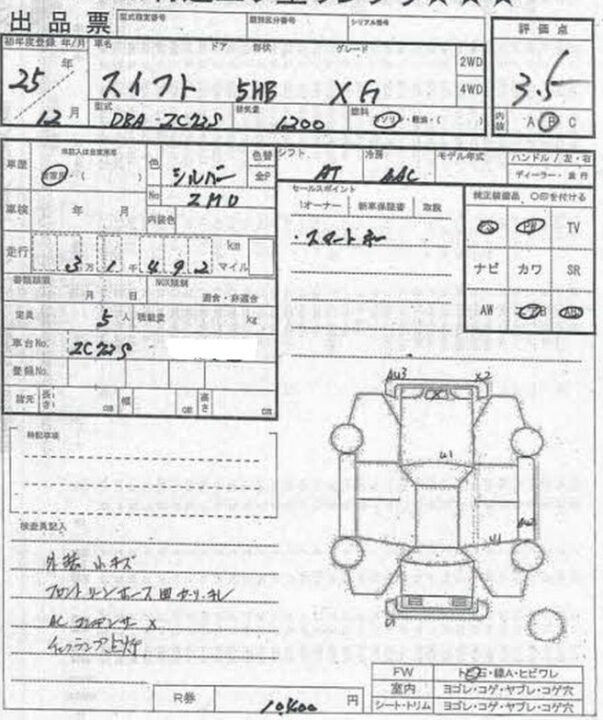 出品票 型式指定番号 類別区分番号 シリアル番号 評価点
初年度登録 年/月 車名 ドア 形状 グレード
25年 スイフト 5HB XG 2WD 4WD 3.5
12月 型式 DBA-ZC72S 排気量 1200 燃料 ガソリン・軽油・( ) 内装 A B C
車歴 自家用・( ) 色 シルバー 色替 全P シフト AT 冷房 AAC モデル年式 ハンドル / 左・右
ディーラー・並行
No ZMU 内装色
車検 年 月
セールスポイント
1オーナー 新車保証書 取説
純正装備品 〇印を付ける
PS PW TV
ナビ カワ SR
AW エアB ABS
走行 3万1千492 km マイル
・スマートキー
書類期限 月 日 NOX規制 適合・非適合
定員 5人 積載量 kg
車台No. ZC72S
登録No.
諸元 長さ cm 幅 cm 高さ cm
AU3 X2
U1
特記事項
検査員記入
外装 小キズ
AC コンデンサー X
FW トビ石・線A・ヒビワレ
室内 ヨゴレ・コゲ・ヤブレ・コゲ穴
シート・トリム ヨゴレ・コゲ・ヤブレ・コゲ穴
R券 円